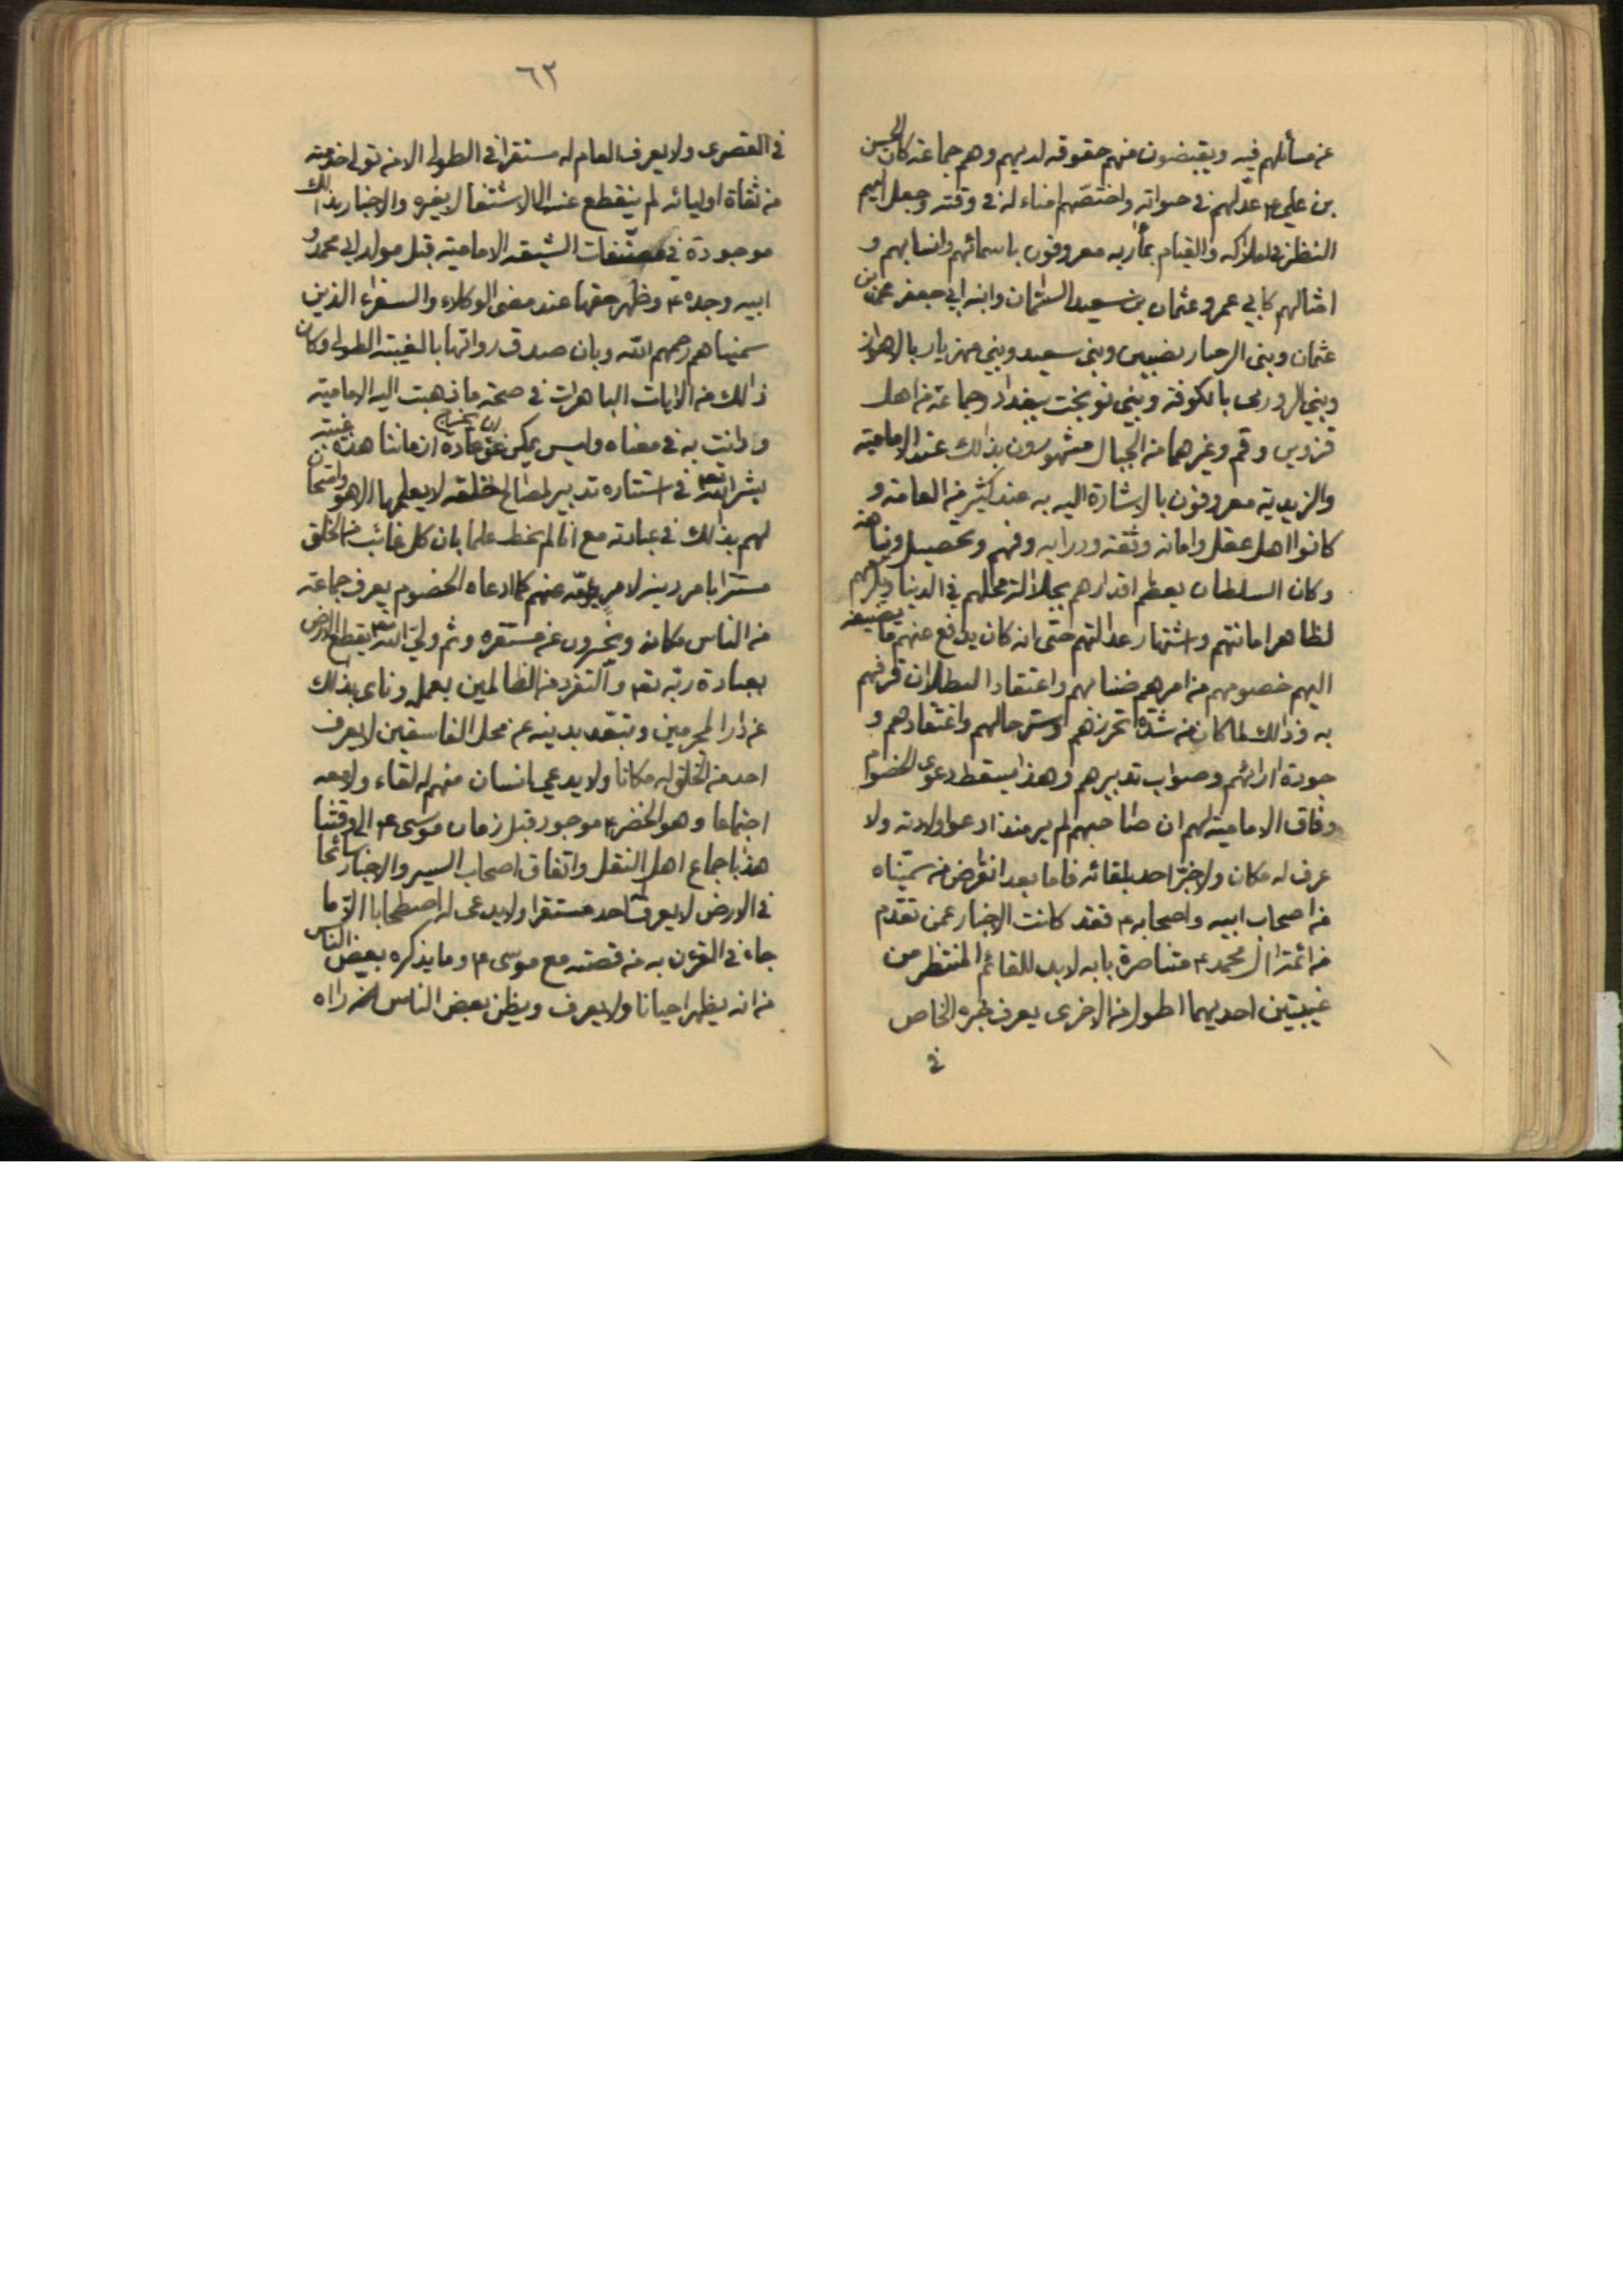 عن مسائلهم فيه ويقبضون منهم حقوقه لديهم وهم جماعة كان الحسن
بن علي ع عدّلهم في حيواته واختصّهم امناء له في وقته وجعل اليهم
النظر في املاكه والقيام بمآربه معروفون باسمائهم وانسابهم و
امثالهم كابي عمرو عثمان بن سعيد السمّان وابنه ابي جعفر محمد بن
عثمان وبني الرحبا بنصيبين وبني سعيد وبني مهزيار بالاهواز
وبني الروربى بالكوفة وبني نوبخت ببغداد وجماعة من اهل
قزوين وقم وغيرهما من الجبال مشهورون بذالك عند الامامية
والزيدية معروفون بالاشارة اليه به عند كثير من العامة و
كانوا اهل عقل وامانة وثقة ودراية وفهم وتحصيل ونباهة
وكان السلطان يعظم اقدارهم بجلالة محلهم في الدنيا ويكرمهم
لظاهر امانتهم واشتهار عدالتهم حتى انه كان يدفع عنهم ما يضيفه
اليهم خصومهم من امرهم ضنا بهم واعتقادا لبطلان قرفهم
به وذالك لما كان من شدة تحرزهم وستر حالهم واعتقادهم و
جودة ارائهم وصواب تدبيرهم وهذا يسقط دعوى الخصوم
وفاق الامامية لهم ان صاحبهم لم ير منذ ادعوا ولادته ولا
عرف له مكان ولا خبّر احد بلقائه فاما بعد انقراض من سمّيناه
من اصحاب ابيه واصحابه ع فقد كانت الاخبار عمن تقدّم
من ائمة ال محمد ع متناصرة بانه لابد للقائم المنتظر من
غيبتين احديهما اطول من الاخرى يعرف خبره الخاص
في
٦٢
في القصرى ولا يعرف العام له مستقرا في الطولى الا من تولى خدمته
من ثقاة اوليائه لم ينقطع عنه الى الاشتغال بغيره والاخبار بذالك
موجودة في مصنّفات الشيعة الامامية قبل مولد ابي محمد و
ابيه وجده ع وظهر حقها عند مضي الوكلاء والسفراء الذين
سميناهم رحمهم الله وبان صدق رواتها بالغيبة الطولى وكان
ذالك من الايات الباهرات في صحة ما ذهبت اليه الامامية
ودانت به في معناه وليس يمكن ان يخرج عن عادة ازماننا هذه غيبة
بشر لله تع في استتاره تدبير لمصالح خلقه لا يعلمها الا هو وامتحان
لهم بذالك في عبادته مع انا لم نحط علما بان كل غائب من الخلق
مستترا بامر دينه لامر يؤمّه عنهم كما ادعاه الخصوم يعرف جماعة
من الناس مكانه ويخبرون عن مستقره وثم وليّ الله تع يقطع الارض
بعبادة ربّه تع والتفرد من الظالمين بعمله وناى بذالك
عن دار المجرمين وتبعّد بدينه عن محل الفاسقين لا يعرف
احد من الخلق له مكانا ولا يدعي انسان منهم له لقاء ولا معه
اجتماعا وهو الخضر ع موجود قبل زمان موسى ع الى وقتنا
هذا باجماع اهل النقل واتفاق اصحاب السير والاخبار سائحا
في الارض لا يعرف له احد مستقرا ولا يدعى له اصطحابا الا ما
جاء في القرءن به من قصته مع موسى ع وما يذكره بعض الناس
من انه يظهر احيانا ولا يعرف ويظن بعض الناس راه